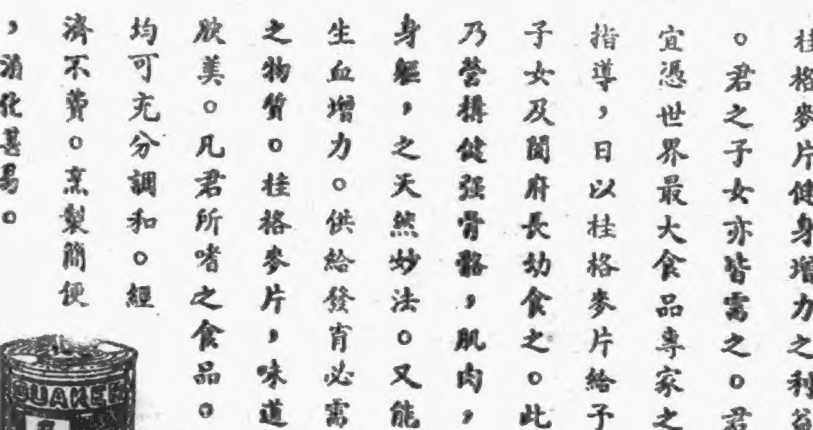 桂格麥片健身增力之利益
。君之子女亦皆需之。君
宜憑世界最大食品專家之
指導，日以桂格麥片給子
子女及閤府長幼食之。此
乃營構健强骨骼，肌肉，
身軀，之天然妙法。又能
生血增力。供給發育必需
之物質。桂格麥片，味道
腴美。凡君所嗜之食品。
均可充分調和。經
濟不費。烹製簡便
，消化甚易。
QUAKER